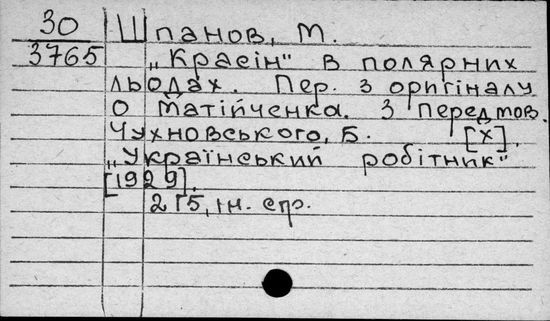 30 Шпанов, М.
3765 „Красін" в полярних
льодах. Пер. з оригіналу
О Матійченка. З передмов.
Чухновського, Б. [Х].
„Український робітник"
[1929].
215, ін. стр.